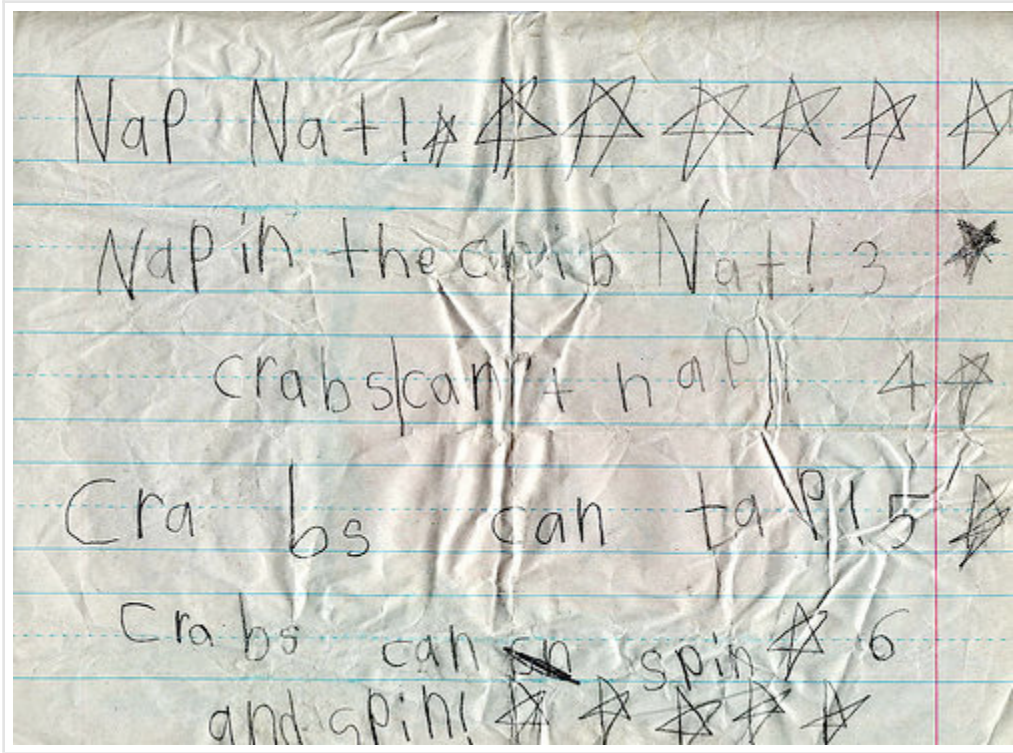 Nap Nat!
Nap in the crib Nat! 3
crabs can nap! 4
Crabs can tap! 5
Crabs can spin 6
and spin!